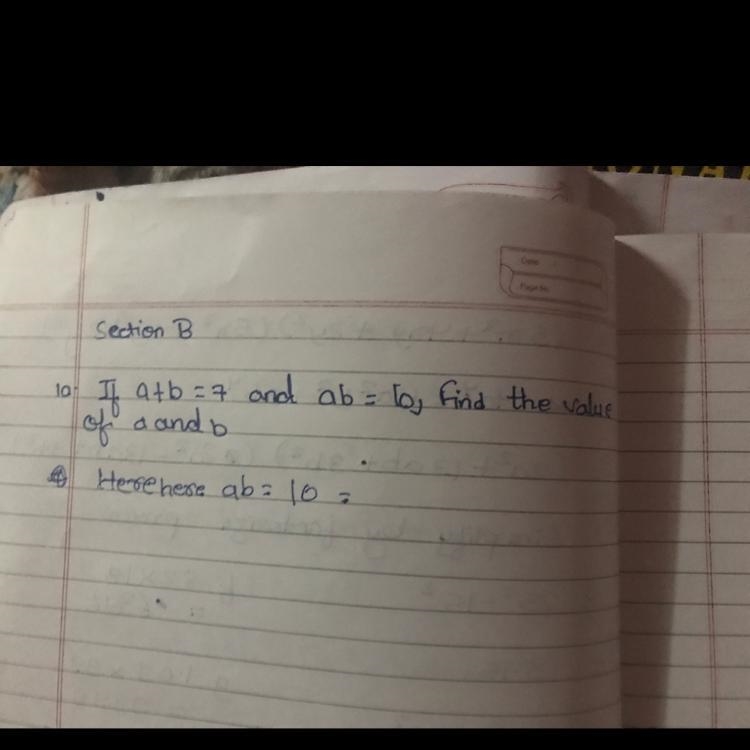 Date
Page No.
Section B
10. If a+b = 7 and ab = 10, find the value
of a and b
Here here ab = 10 =